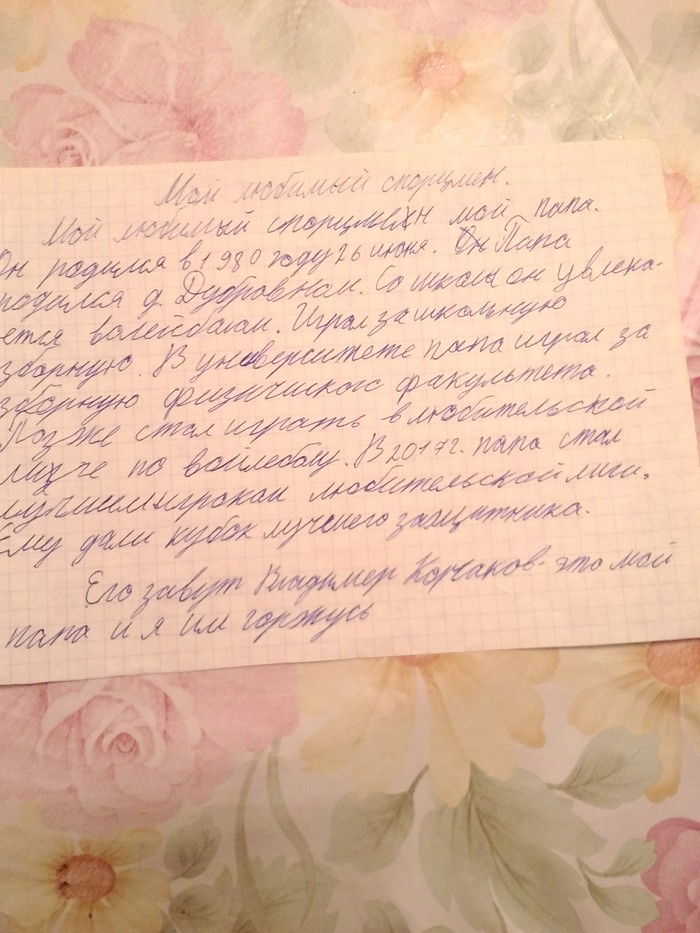 Мой любимый спорцмен.
Мой любимый спорцмен мой папа.
Он родился в 1980 году 26 июня. Папа
родился д. Дубровном. Со школы он увлека-
ется валейбалом. Играл за школьную
зборную. В университете папа играл за
зборную физического факультета.
Позже стал играть в любительской
лиге по войлеболу. В 2017 г. папа стал
лучшем игроком любительской лиги.
Ему дали кубок лучшего защитника.
Его завут Владимер Корчаков - это мой
папа и я им горжусь